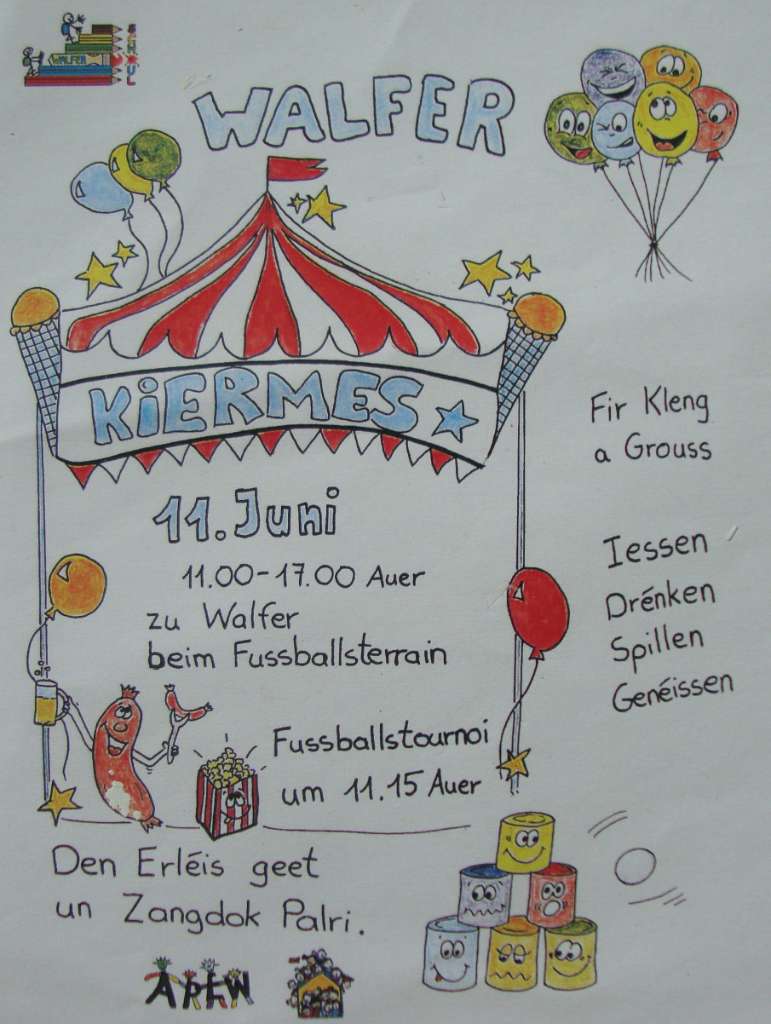 WALFER
SCHOUL
WALFER
KiERMES
11. Juni
11.00-17.00 Auer
zu Walfer
beim Fussballsterrain
Fussballstournoi
um 11.15 Auer
Fir Kleng
a Grouss
Iessen
Drénken
Spillen
Genéissen
Den Erléis geet
un Zangdok Palri.
APEW